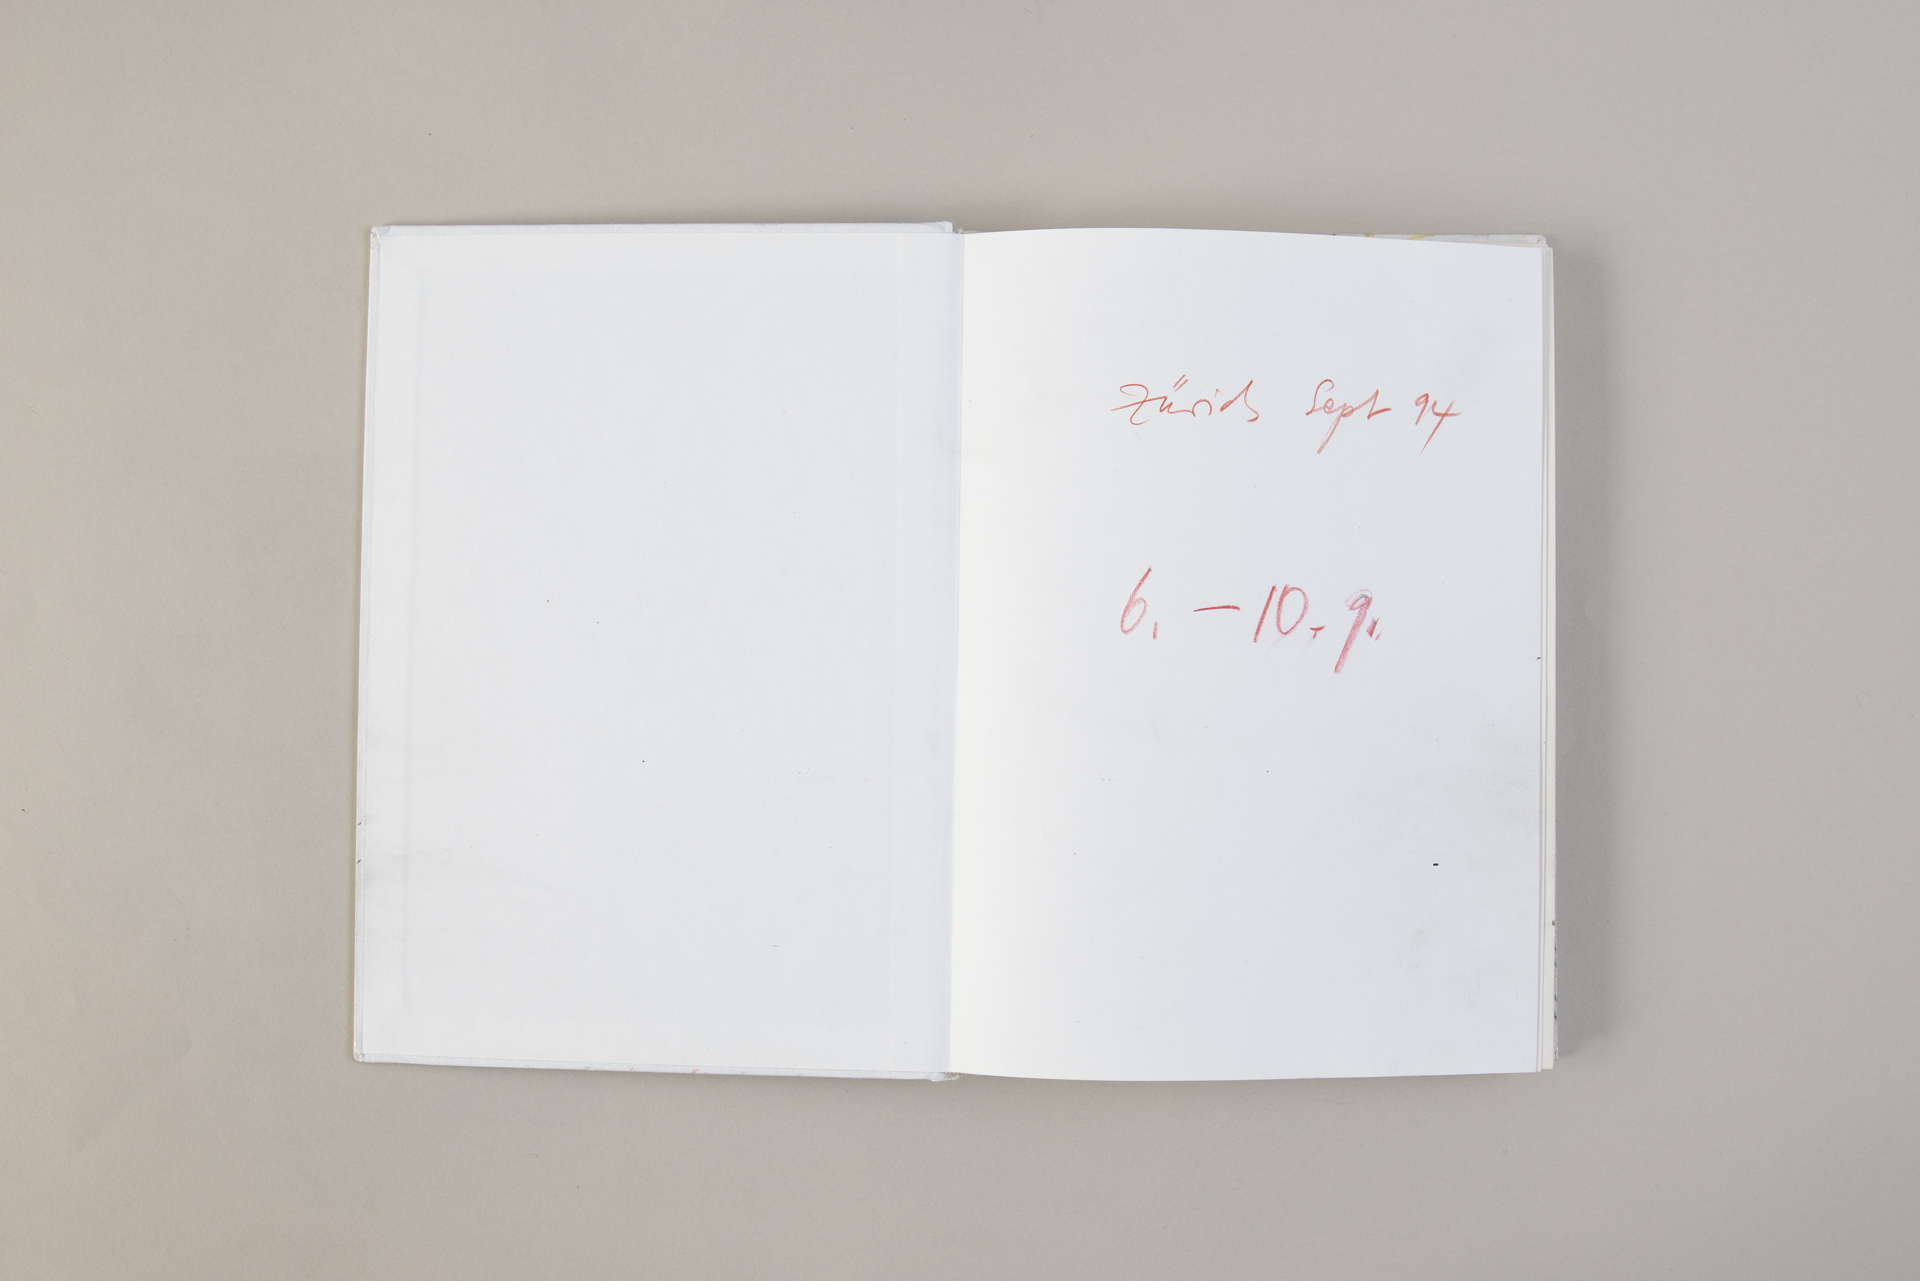 Zürich Sept 94
6. – 10. 9.